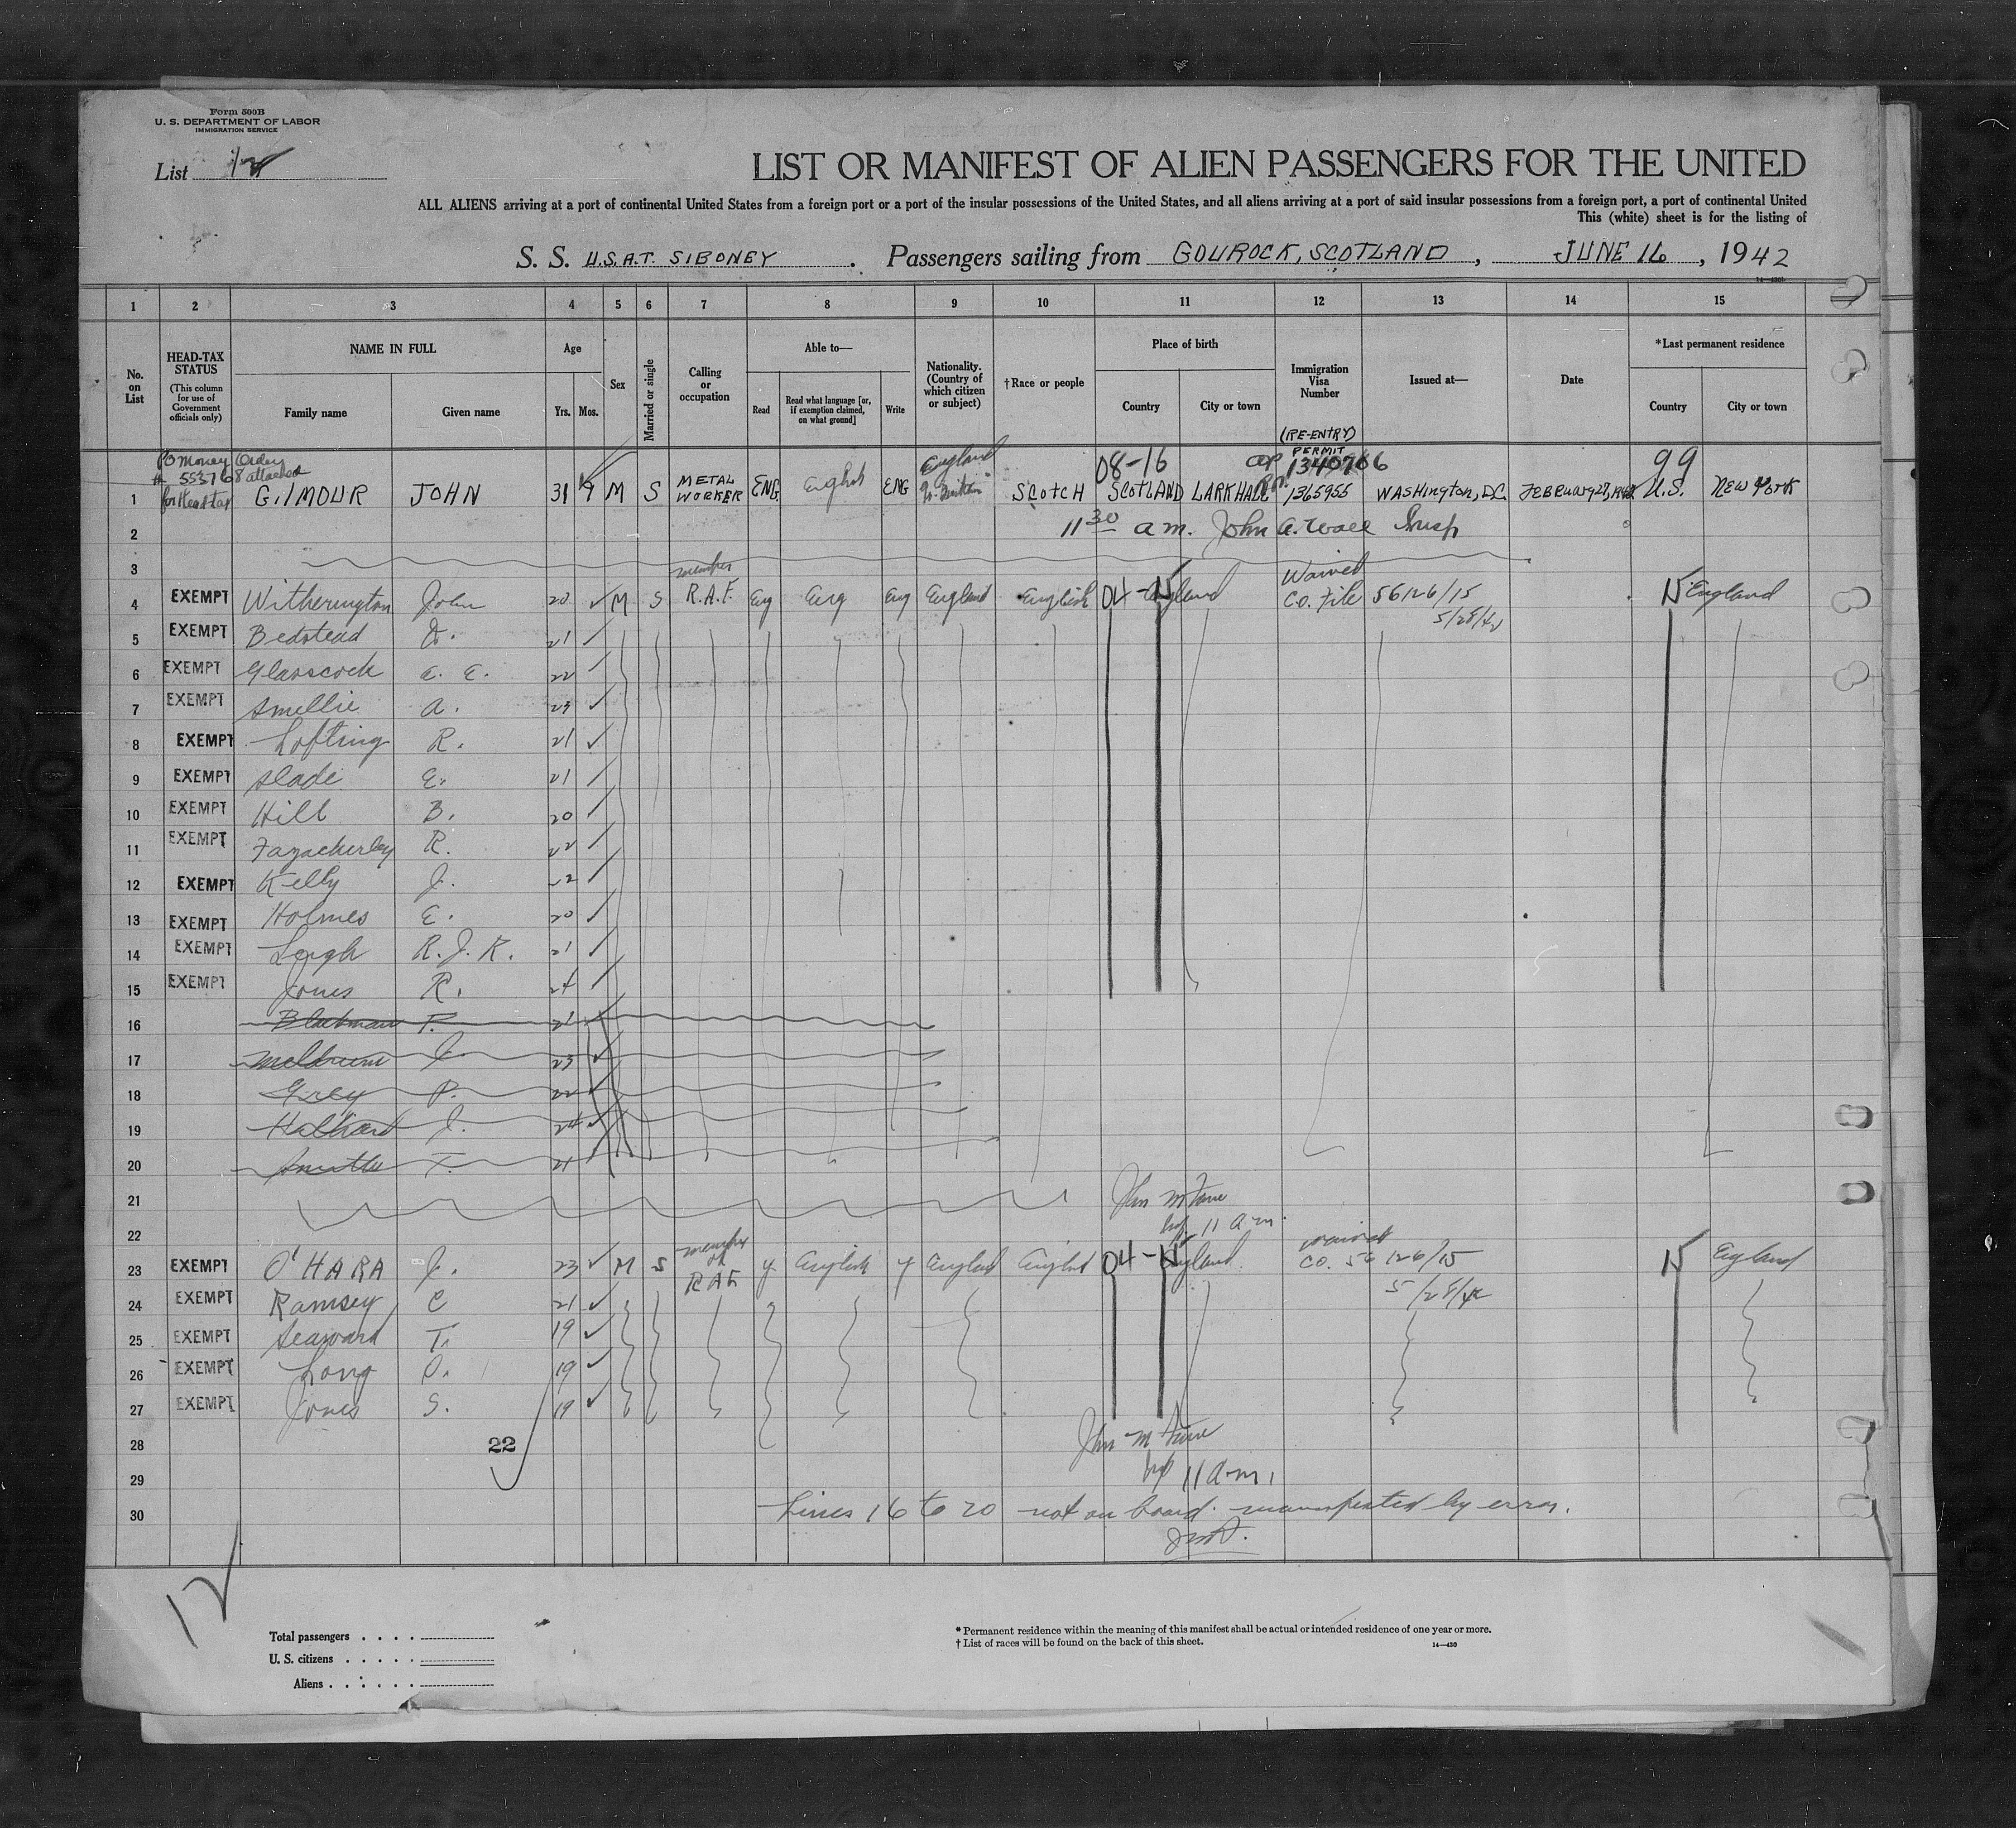 Form 500B
U. S. DEPARTMENT OF LABOR
IMMIGRATION SERVICE
List 12
LIST OR MANIFEST OF ALIEN PASSENGERS FOR THE UNITED
ALL ALIENS arriving at a port of continental United States from a foreign port or a port of the insular possessions of the United States, and all aliens arriving at a port of said insular possessions from a foreign port, a port of continental United
This (white) sheet is for the listing of
S. S. U.S.A.T. SIBONEY. Passengers sailing from GOUROCK, SCOTLAND, JUNE 16, 1942
1 2 3 4 5 6 7 8 9 10 11 12 13 14 15
No. on List
HEAD-TAX STATUS (This column for use of Government officials only)
NAME IN FULL
Family name Given name
Age
Yrs. Mos.
Sex
Married or single
Calling or occupation
Able to—
Read
Read what language [or, if exemption claimed, on what ground]
Write
Nationality. (Country of which citizen or subject)
† Race or people
Place of birth
Country City or town
Immigration Visa Number
(RE-ENTRY) PERMIT
Issued at—
Date
*Last permanent residence
Country City or town
PO Money Order
# 553768 attached
for Head tax
England
08-16 1340706 99
1 GILMOUR JOHN 31 7 M S METAL WORKER ENG. English ENG SCOTCH SCOTLAND LARKHALL 1365955 WASHINGTON, D.C. FEBRUARY 27, 1942 U.S. NEW YORK
2 11 30 a.m. John A. Wall Insp
3
member
Waived
4 EXEMPT Witherington John 20 M S R.A.F. Eng Eng Eng England English 04 - 15 England Co. File 56126/15 15 England
5/28/42
5 EXEMPT Bedstead D. 21
6 EXEMPT Glasscock A. E. 22
7 EXEMPT Smellie A. 23
8 EXEMPT Lofting R. 21
9 EXEMPT Slade E. 21
10 EXEMPT Hill B. 20
11 EXEMPT Fazackerley R. 22
12 EXEMPT Kelly J. 22
13 EXEMPT Holmes E. 20
14 EXEMPT Leigh R. J. K. 21
15 EXEMPT Jones R. 24
16 Blackman P. 21
17 Meldrum J. 23
18 Grey P. 22
19 J. 24
20 T. 21
21
22 11 a m.
member of waived
23 EXEMPT O'HARA J. 23 M S RAF y English y England English 04 - 15 England CO. 56126/15 15 England
5/28/42
24 EXEMPT Ramsey C 21
25 EXEMPT Seaward T. 19
26 EXEMPT Long D. 19
27 EXEMPT Jones S. 19
28 22
29 11 a.m.
30 Lines 16 to 20 not on board. manifested by error.
12
Total passengers . . . .
U. S. citizens . . . . .
Aliens . . . . . .
* Permanent residence within the meaning of this manifest shall be actual or intended residence of one year or more.
† List of races will be found on the back of this sheet. 14—430